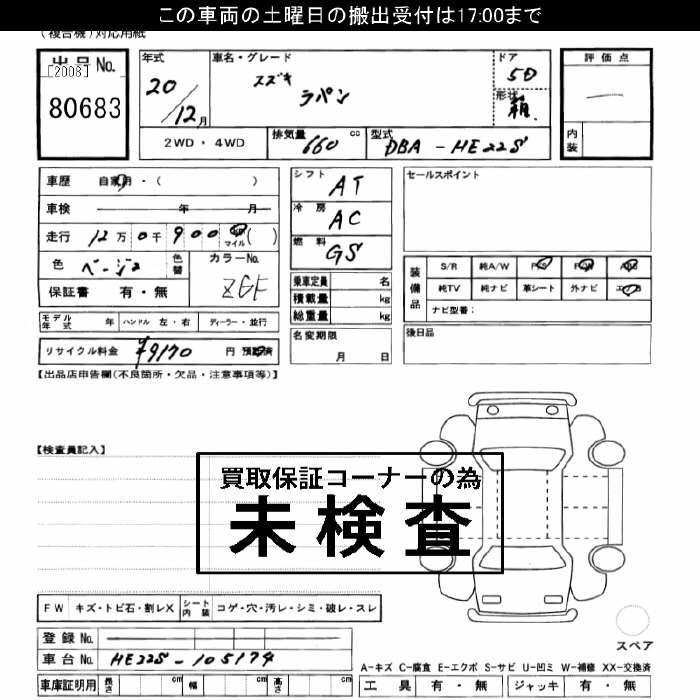 この車両の土曜日の搬出受付は17:00まで
(複合機)対応用紙
出品No. [2008] 80683
年式 20/12月
車名・グレード スズキ ラパン
ドア 5D
形状 箱
評価点 —
内装
2WD・4WD 排気量 660 cc 型式 DBA-HE22S
車歴 自家用・( )
車検 年 月
走行 12万0千900 km マイル ( )
色 ベージュ 色替 カラーNo. ZGF
保証書 有・無
シフト AT
冷房 AC
燃料 GS
乗車定員 名
積載量 kg
総重量 kg
名変期限 月 日
セールスポイント
装備品 S/R 純A/W P/S P/W ABS
純TV 純ナビ 革シート 外ナビ エアB
ナビ型番:
後日品
モデル年式 年 ハンドル 左・右 ディーラー・並行
リサイクル料金 ¥9170 円 預託済
【出品店申告欄(不良箇所・欠品・注意事項等)】
【検査員記入】
買取保証コーナーの為
未検査
FW キズ・トビ石・割レX シート内装 コゲ・穴・汚レ・シミ・破レ・スレ
スペア
登録No.
車台No. HE22S-105174
A-キズ C-腐食 E-エクボ S-サビ U-凹ミ W-補修 XX-交換済
車庫証明用 長さ cm 幅 cm 高さ cm
工具 有・無 ジャッキ 有・無